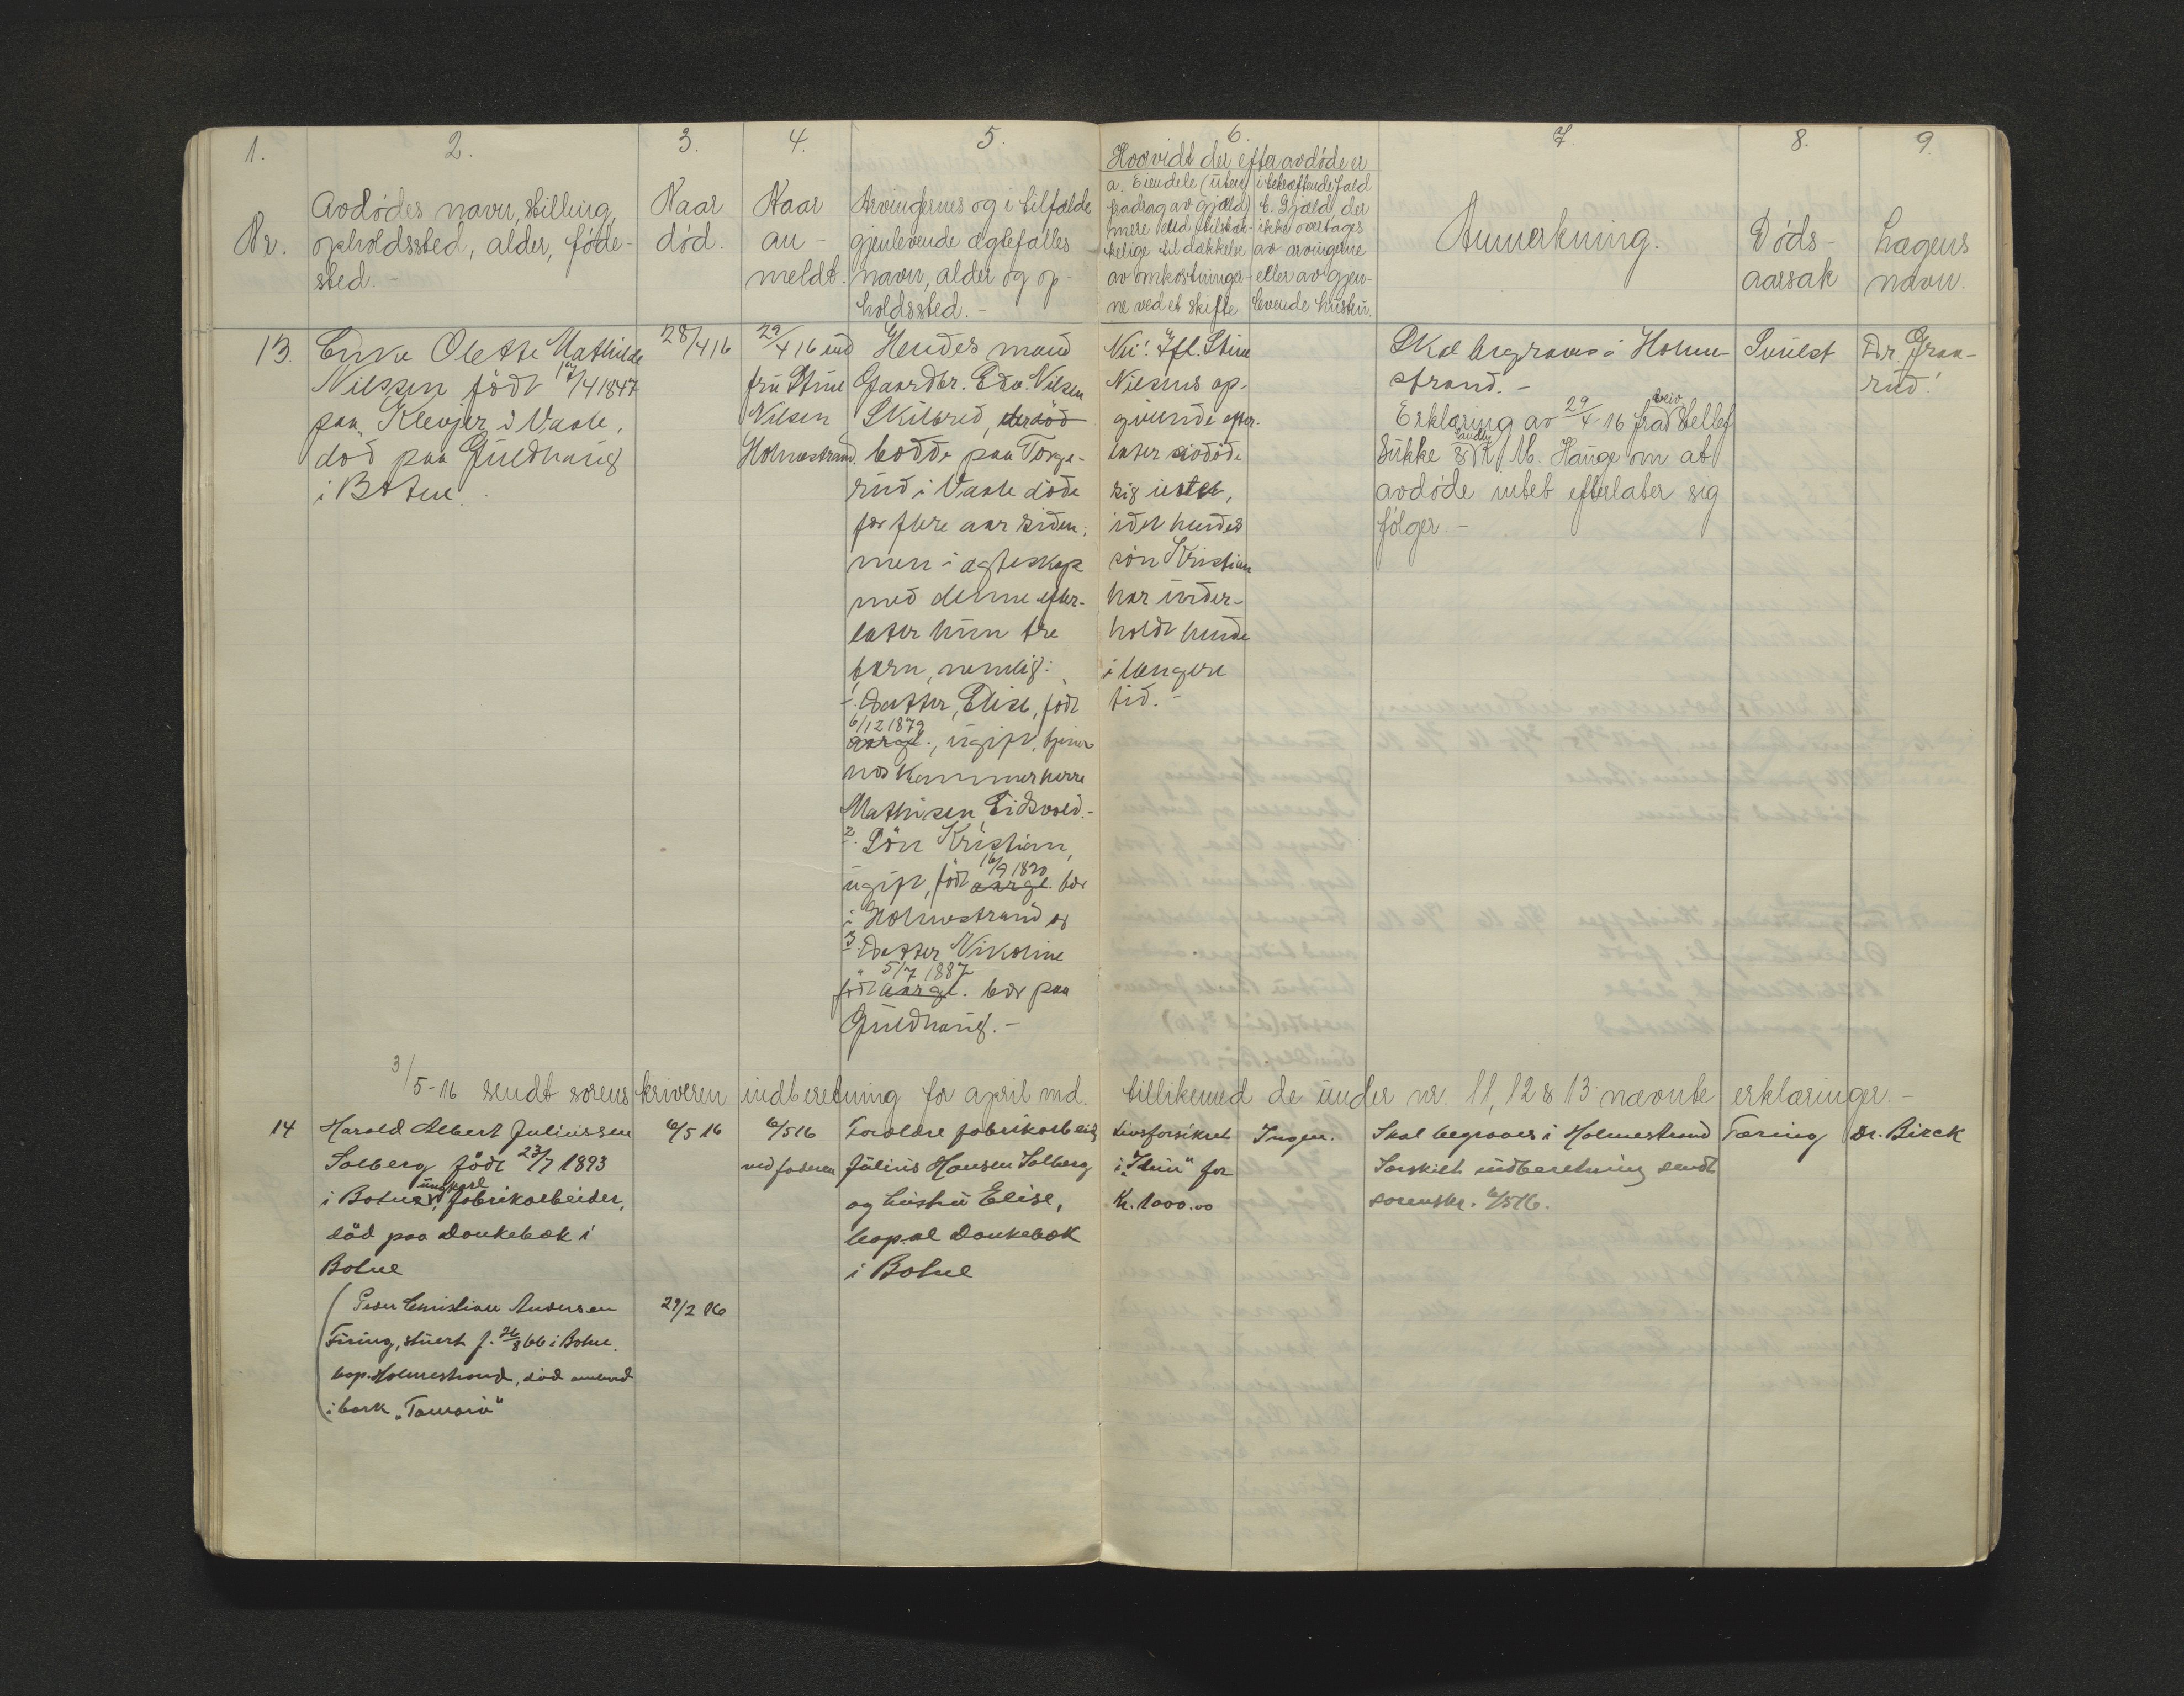 1.
2.
3.
4.
5.
6.
7.
8.
9.
Nr.
Avdødes navn, stilling,
opholdssted, alder, føde-
sted. -
Naar
død.
Naar
an-
meldt.
Arvingernes og i tilfælde
gjenlevende ægtefælles
navn, alder og op-
holdssted. -
Hvorvidt der efter avdøde er
a. Eiendele (uten
fradrag av gjæld)
mere end tilstræk-
kelige til dækkelse
av omkostninga-
ne ved et skifte
i bekræftende fald
b. Gjæld, der
ikke overtages
av arvingerne
eller av gjen-
levende hustru.
Anmerkning.
Døds-
aarsak
Lægens
navn.
13.
Enke Olette Mathilde
Nilssen født 17/4 1847
paa Klevjer i Vaale,
død paa Guldhaug
i Botne.
28/4 16
29/4 16 ved
fru Stine
Nilsen
Holmestrand.
Hendes mand
Gaardbr. Edv. Nilsen
Skibred, der død
bodde paa Torge-
rud i Vaale døde
for flere aar siden;
men i ægteskap
med denne efter-
later hun tre
barn, nemlig:
1. Datter, Elise, født
6/12 1879
aargl., ugift, tjener
hos Kammerherre
Mathisen, Eidsvold. -
2. Søn Kristian,
ugift, født 16/9 1880 aargl. bor
i Holmestrand og
3. Datter Nikoline
5/7 1887
født aargl. bor paa
Guldhaug. -
Nei! Ifl. Stine
Nilsens op-
givende efter-
later avdøde
sig intet,
idet hendes
søn Kristian
har under-
holdt hende
i længere
tid. -
Skal begraves i Holme-
strand. -
Erklæring av 29/4 16 fra
Sukke & M. Hauge om at
avdøde intet efterlater sig
følger. -
Svulst
Dr. Graa-
rud!
3/5-16 sendt sorenskriveren indberetning for april md. tillikemed de under nr. 11, 12 & 13 nævnte erklæringer. -
14
Harald Albert Juliussen
Solberg født 23/7 1893
i Botne, ungkarl fabrikarbeider,
død paa Dankebæk i
Botne
6/5 16
6/5 16
ved faderen
Forældre fabrikarbeid.
Julius Hansen Solberg
og hustru Elise,
bop.al Dankebæk
i Botne
Livsforsikret
i "Idun" for
Kr. 1000.00
Ingen.
Skal begraves i Holmestrand
Særskilt indberetning sendt
sorenskr. 6/5 16.
Tæring
Dr. Birck
(Peder Christian Andersen
Firing, stuert f. 26/8 66 i Botne.
bop. Holmestrand, død ombord
i bark
29/2 16